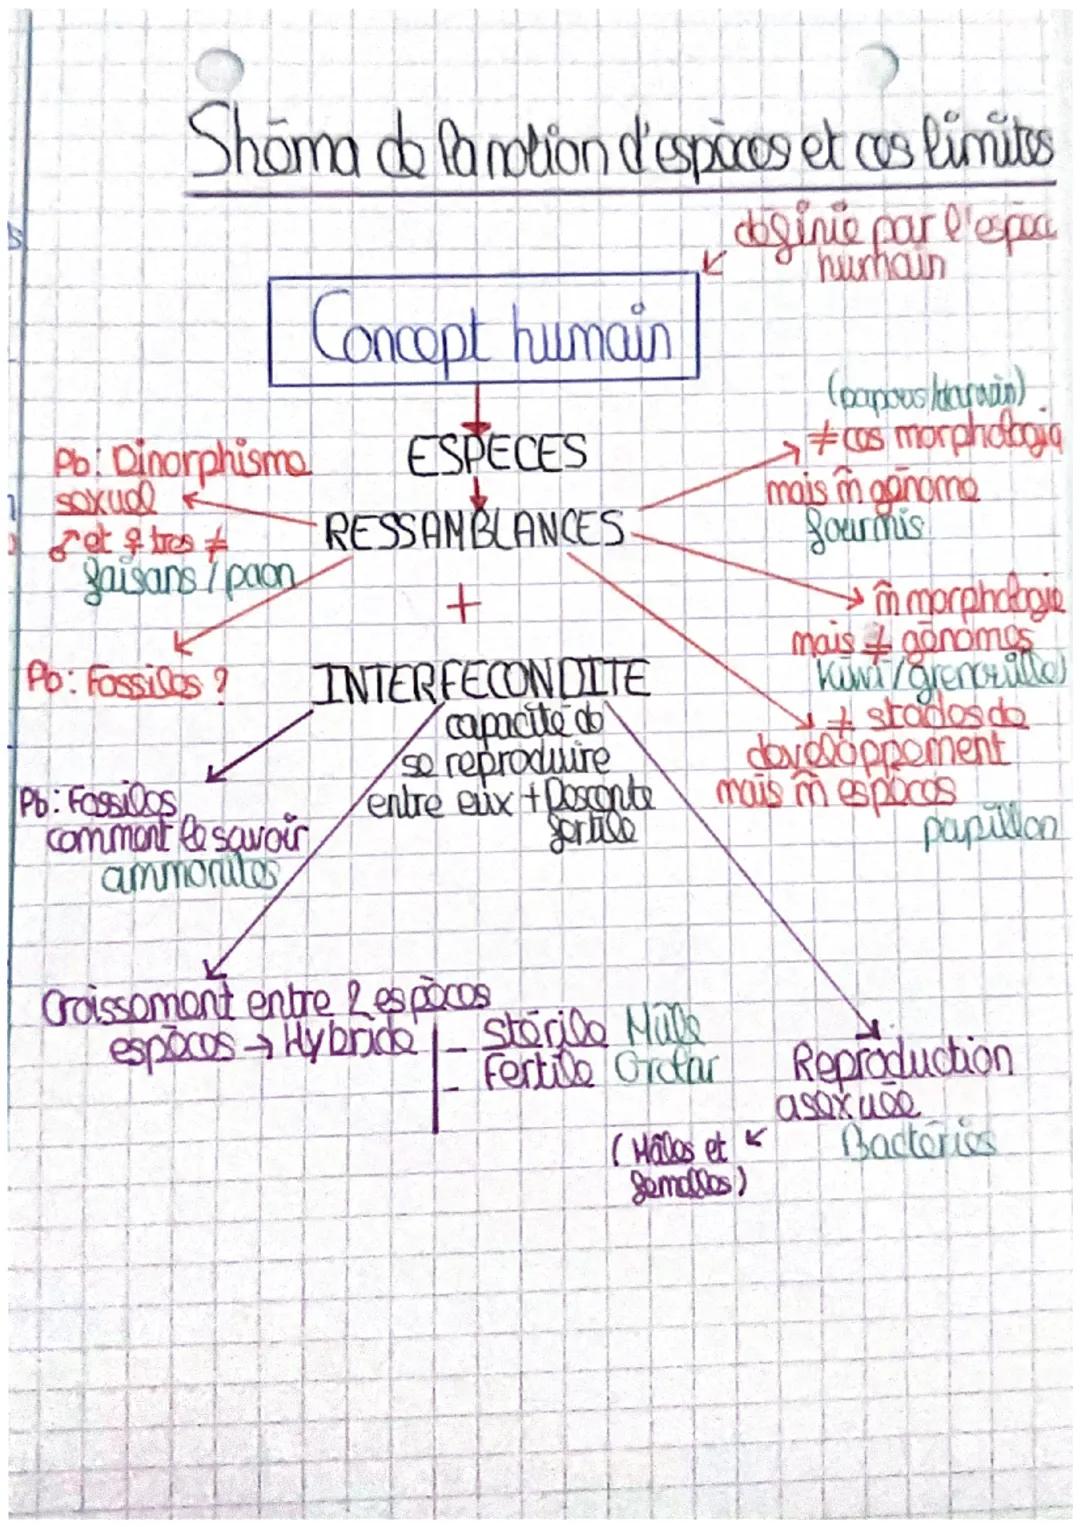 Shéma de la notion d'espèces et ces limites
définie par l'espèce
humain
Concept humain
(papous/darwin)
ESPECES
≠ cas morphologiq
Pb: Dinorphisme
sexuel
mais m̂ génome
RESSAMBLANCES
fourmis
♂ et ♀ tres ≠
faisans / paon
+
m̂ morphologie
mais ≠ génomes
Kiwi/grenouilles
Pb: Fossiles ?
INTERFECONDITE
capacité de
se reproduire
entre eux + Descente
fertile
≠ stades de
developpement
mais m̂ espèces
papillon
Pb: Fossiles
comment le savoir
ammonites
Croissement entre 2 espèces
espèces → Hybride
- Stérile Mule
- Fertile Grolar
Reproduction
asexuée
Bactéries
(Mâles et
femelles)